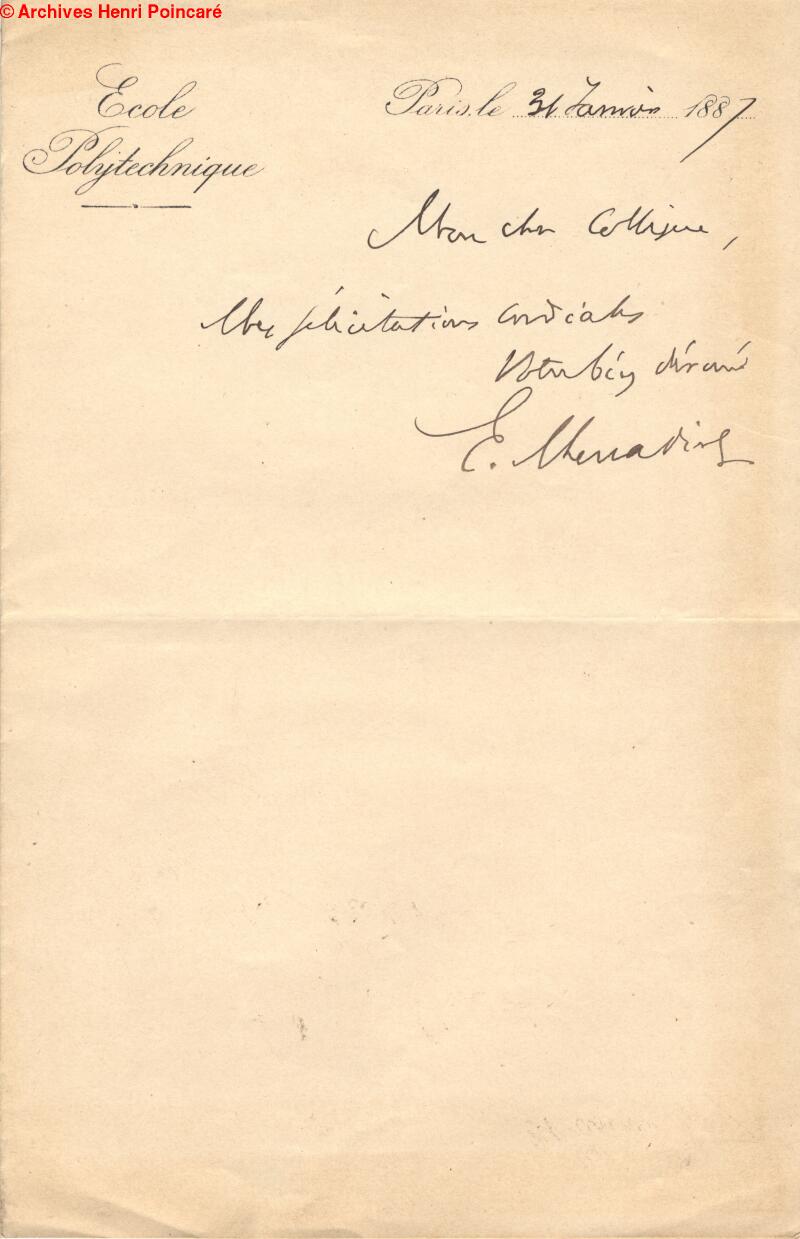 © Archives Henri Poincaré
Ecole
Polytechnique
Paris, le 31 Janvier 1887
Mon cher Collègue,
Mes félicitations cordiales
Votre bien dévoué
E. Mercadier